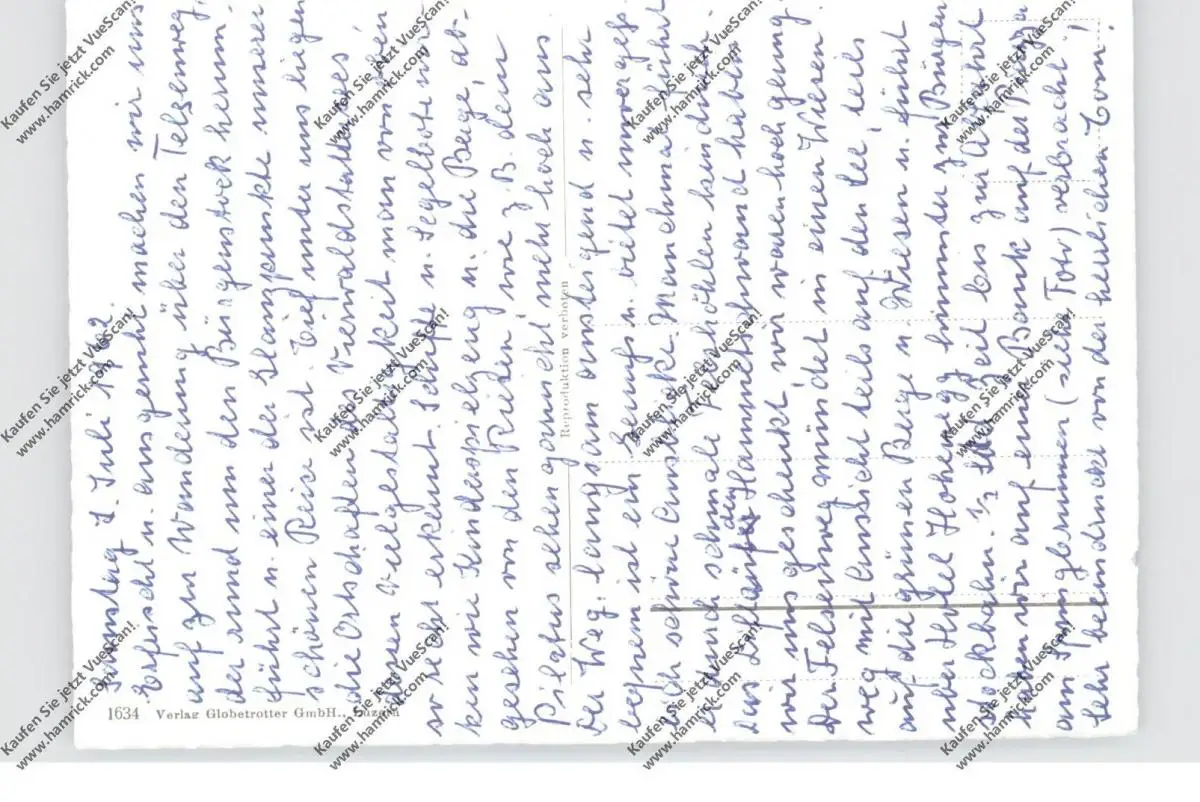 Samstag 1. Juli 1972
Erfrischt u. ausgeruht machen wir uns
auf zur Wanderung über den Felsenweg,
der rund um den Bürgenstock herum-
führt u. einer der Glanzpunkte unserer
schönen Reise ist. Tief unter uns liegen
die Ortschaften des Vierwaldstättersees
dessen Vielgestaltigkeit man von hier
so recht erkennt. Schiffe u. Segelbote wir-
ken wie Kinderspielzeug u. die Berge, ab-
gesehen von den Riesen wie z. B. dem
Pilatus sehen gar nicht mehr hoch aus
Der Weg, langsam ansteigend u. sehr
bequem ist ein Genuss u. bietet unverges-
lich schöne Ausblicke. Manchmal führt
er durch schmale Felshöhlen hindurch.
Den Lift an der Hammetschwand haben
wir uns geschenkt, wir waren hoch genug.
Der Felsenweg mündet in einen Wiesen-
weg mit Aussicht teils auf den See, teils
auf die grünen Berge u. Wiesen u. führt
über Hotel Honegg hinunter zur Bürgen-
stockbahn. 1/2 Std Zeit bis zur Abfahrt
haben wir auf einer Bank auf der Piazza
am Springbrunnen verbracht,
sehr beeindruckt von der herrlichen Tour!
Reproduktion verboten
1634 Verlag Globetrotter GmbH., Luzern
Kaufen Sie jetzt VueScan!
www.hamrick.com